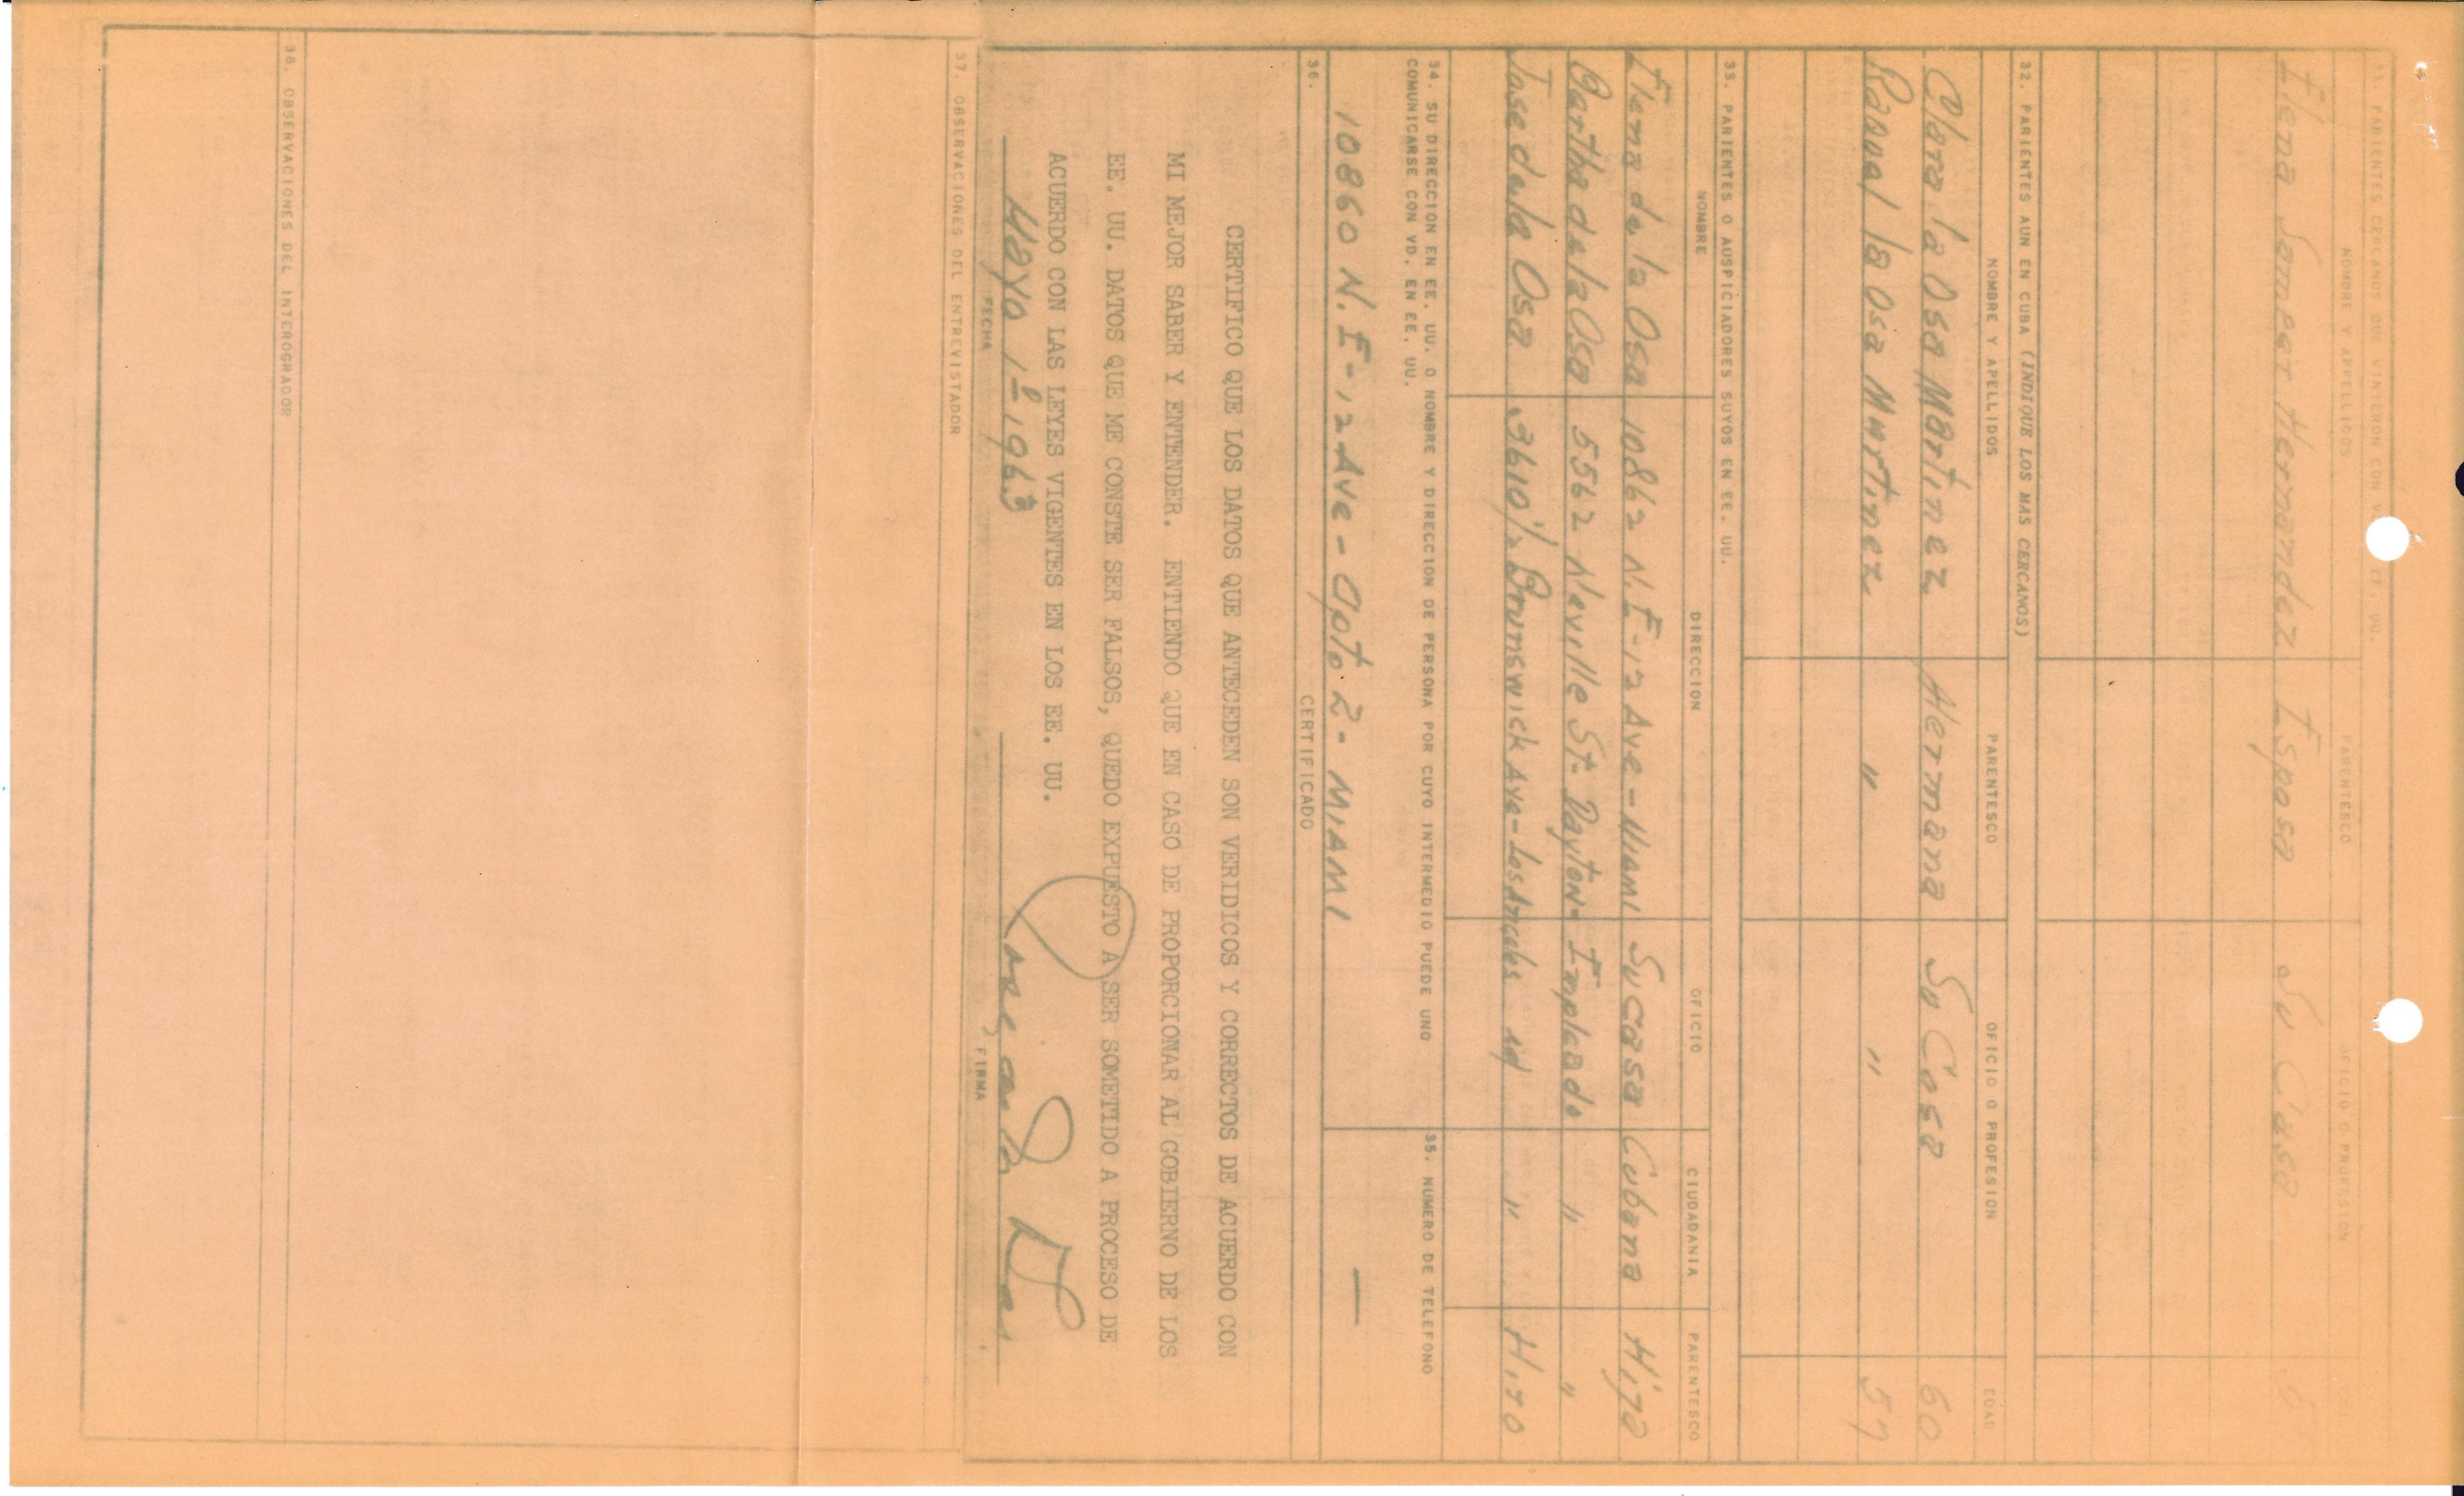 31. PARIENTES CERCANOS QUE VINIERON CON VD. EE. UU.
NOMBRE Y APELLIDOS PARENTESCO OFICIO O PROFESION
Elena Samper Hernandez Esposa Su Casa
32. PARIENTES AUN EN CUBA (INDIQUE LOS MAS CERCANOS)
NOMBRE Y APELLIDOS PARENTESCO OFICIO O PROFESION EDAD
Clara la Osa Martinez Hermana Su Casa 60
la Osa Martinez " " 57
33. PARIENTES O AUSPICIADORES SUYOS EN EE. UU.
NOMBRE DIRECCION OFICIO CIUDADANIA PARENTESCO
Elena de la Osa 10862 N.E-12 Ave - MIAMI Su casa Cubana Hija
Bertha de la Osa 5562 Neville St- Dayton- Empleada " "
Jose de la Osa 3610 1/2 Brunswick Ave-Los Angeles id " Hijo
34. SU DIRECCION EN EE. UU. O NOMBRE Y DIRECCION DE PERSONA POR CUYO INTERMEDIO PUEDE UNO
COMUNICARSE CON VD. EN EE. UU.
35. NUMERO DE TELEFONO
10860 N.E-12 Ave - Apto 2 - MIAMI —
36. CERTIFICADO
CERTIFICO QUE LOS DATOS QUE ANTECEDEN SON VERIDICOS Y CORRECTOS DE ACUERDO CON
MI MEJOR SABER Y ENTENDER. ENTIENDO QUE EN CASO DE PROPORCIONAR AL GOBIERNO DE LOS
EE. UU. DATOS QUE ME CONSTE SER FALSOS, QUEDO EXPUESTO A SER SOMETIDO A PROCESO DE
ACUERDO CON LAS LEYES VIGENTES EN LOS EE. UU.
Mayo 1º 1963
FECHA FIRMA
37. OBSERVACIONES DEL ENTREVISTADOR
38. OBSERVACIONES DEL INTEROGRADOR